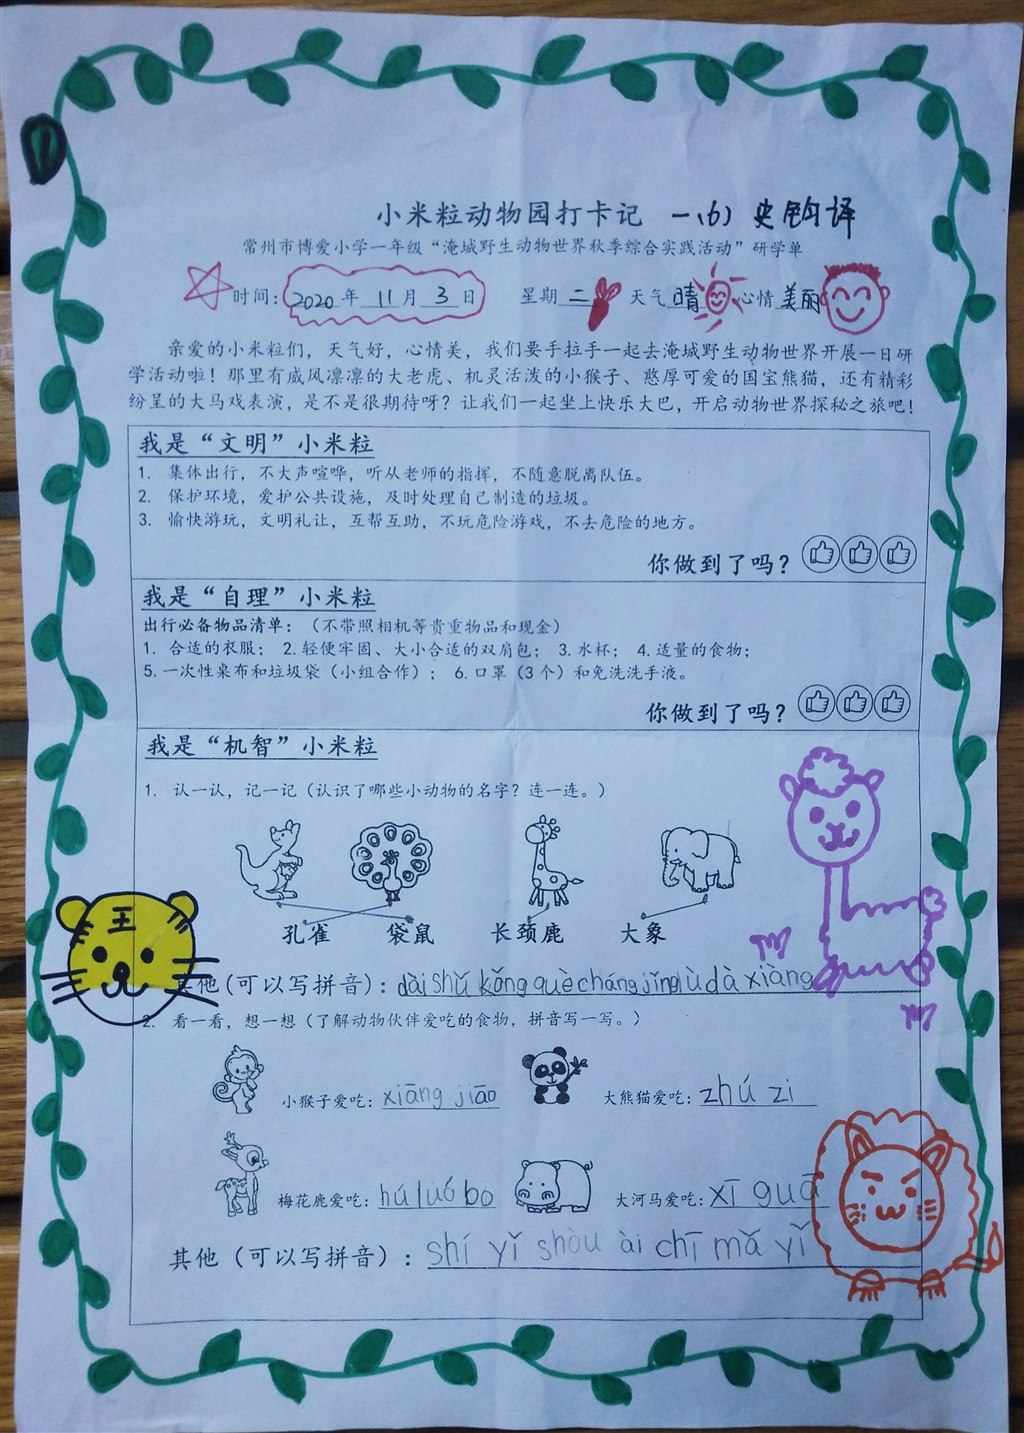 小米粒动物园打卡记 一、(6) 史 译
常州市博爱小学一年级“淹城野生动物世界秋季综合实践活动”研学单
时间：2020年 11月 3日 星期二 天气晴 心情美丽
亲爱的小米粒们，天气好，心情美，我们要手拉手一起去淹城野生动物世界开展一日研
学活动啦！那里有威风凛凛的大老虎、机灵活泼的小猴子、憨厚可爱的国宝熊猫，还有精彩
纷呈的大马戏表演，是不是很期待呀？让我们一起坐上快乐大巴，开启动物世界探秘之旅吧！
我是“文明”小米粒
1. 集体出行，不大声喧哗，听从老师的指挥，不随意脱离队伍。
2. 保护环境，爱护公共设施，及时处理自己制造的垃圾。
3. 愉快游玩，文明礼让，互帮互助，不玩危险游戏，不去危险的地方。
你做到了吗？
我是“自理”小米粒
出行必备物品清单：（不带照相机等贵重物品和现金）
1. 合适的衣服； 2.轻便牢固、大小合适的双肩包； 3.水杯； 4.适量的食物；
5.一次性桌布和垃圾袋（小组合作）； 6.口罩（3个）和免洗洗手液。
你做到了吗？
我是“机智”小米粒
1. 认一认，记一记（认识了哪些小动物的名字？连一连。）
孔雀 袋鼠 长颈鹿 大象
王
其他(可以写拼音)：dài shǔ kǒng què cháng jǐng lù dà xiàng
2. 看一看，想一想（了解动物伙伴爱吃的食物，拼音写一写。）
小猴子爱吃：xiāng jiāo 大熊猫爱吃：zhú zi
梅花鹿爱吃：hú luó bo 大河马爱吃：xī guā
其他（可以写拼音）：shí yǐ shòu ài chī mǎ yǐ